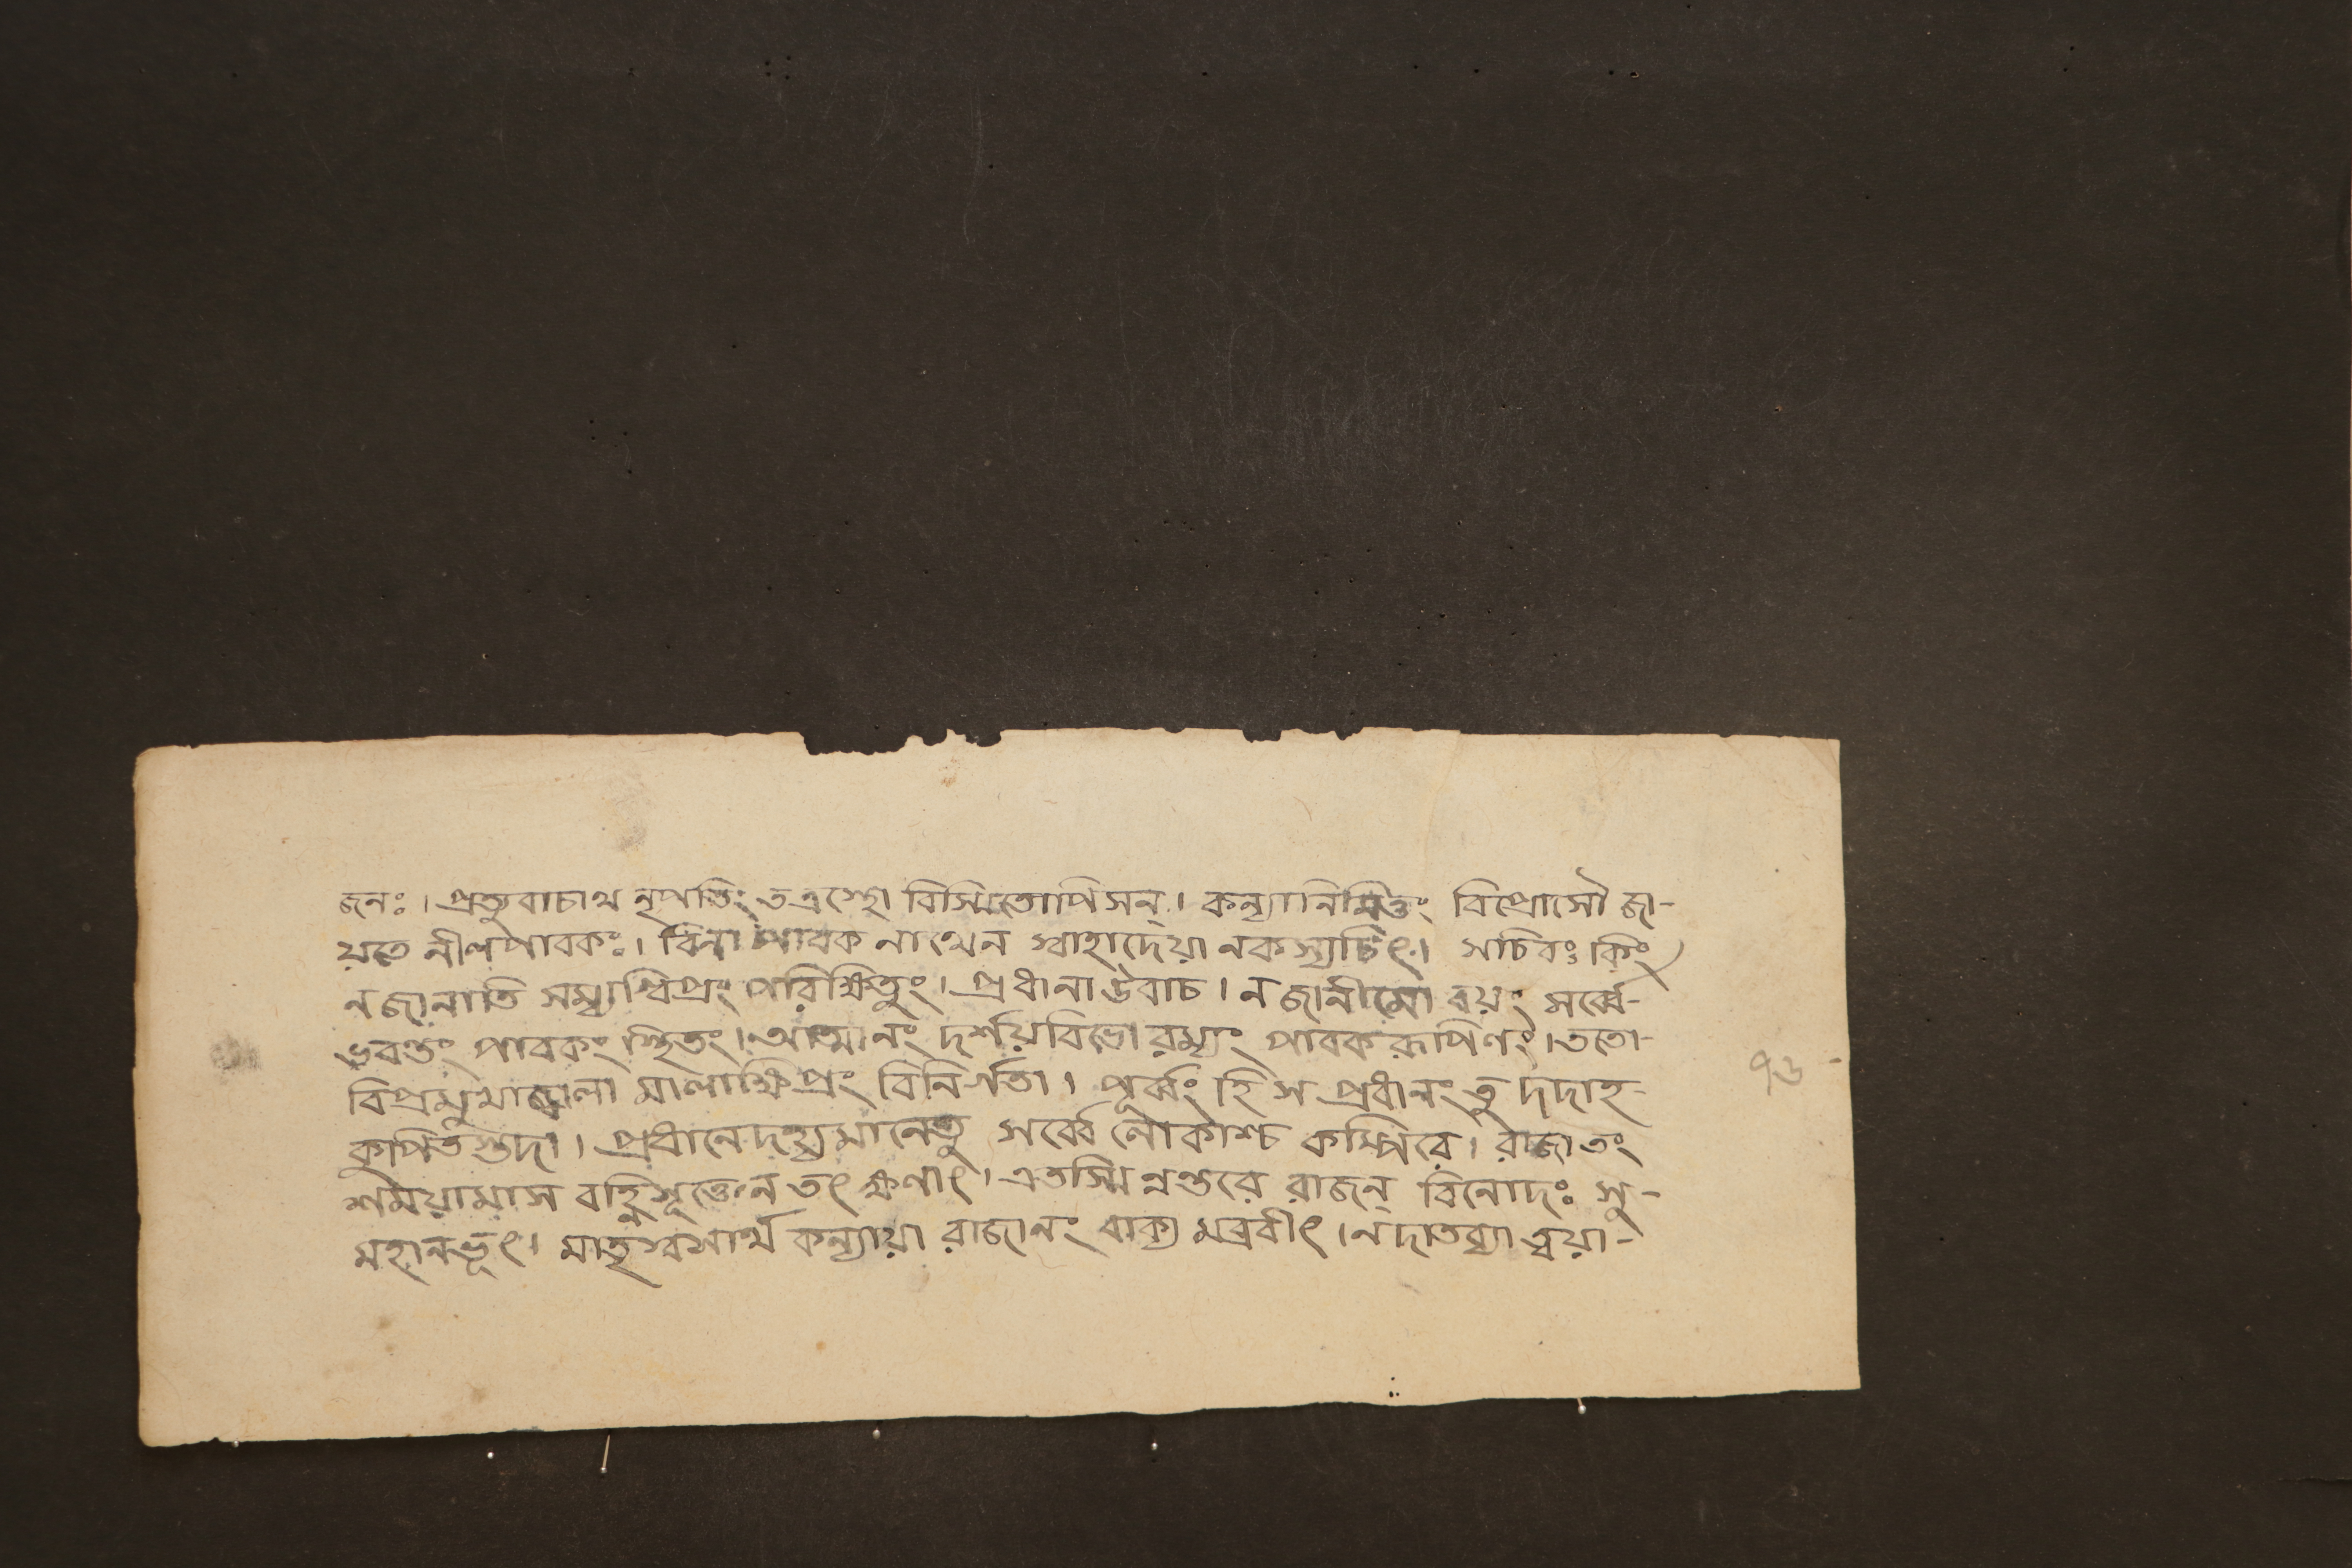 জনঃ। প্রত্যুবাচাথ নৃপতিং তত্রস্থো বিস্মিতোপিসন্। কন্যানিমিত্তং বিপ্রোসৌ জা-
য়তে নীলপাবকঃ। বিনা পাবক নাথেন স্বাহাদেয়া নকস্যচিৎ। সচিবঃ কিং
নজানাতি সম্যগ্বিপ্রং পরিক্ষিতুং। প্রধানা উবাচ। ন জানীমো বয়ং সর্ব্বে-
ভবন্তং পাবকং স্থিতং। আত্মানং দর্শয়বিভো রম্যং পাবকরূপিণং। ততো-
বিপ্রমুখাজ্জ্বালা মালাক্ষিপ্রং বিনির্গতা। পূর্ব্বং হি স প্রধানং তু দদাহ-
কুপিতস্তদা। প্রধানেদহ্যমানেতু সর্ব্বে লোকাশ্চ কম্পিরে। রাজা তং
শময়ামাস বহ্নিসূক্তেন তৎ ক্ষণাৎ। এতস্মিন্নন্তরে রাজন্ বিনোদঃ সু-
মহানভূৎ। মাতৃস্বসাথ কন্যায়া রাজানং বাক্য মব্রবীৎ। নদাতব্যা ত্বয়া-
৭৬